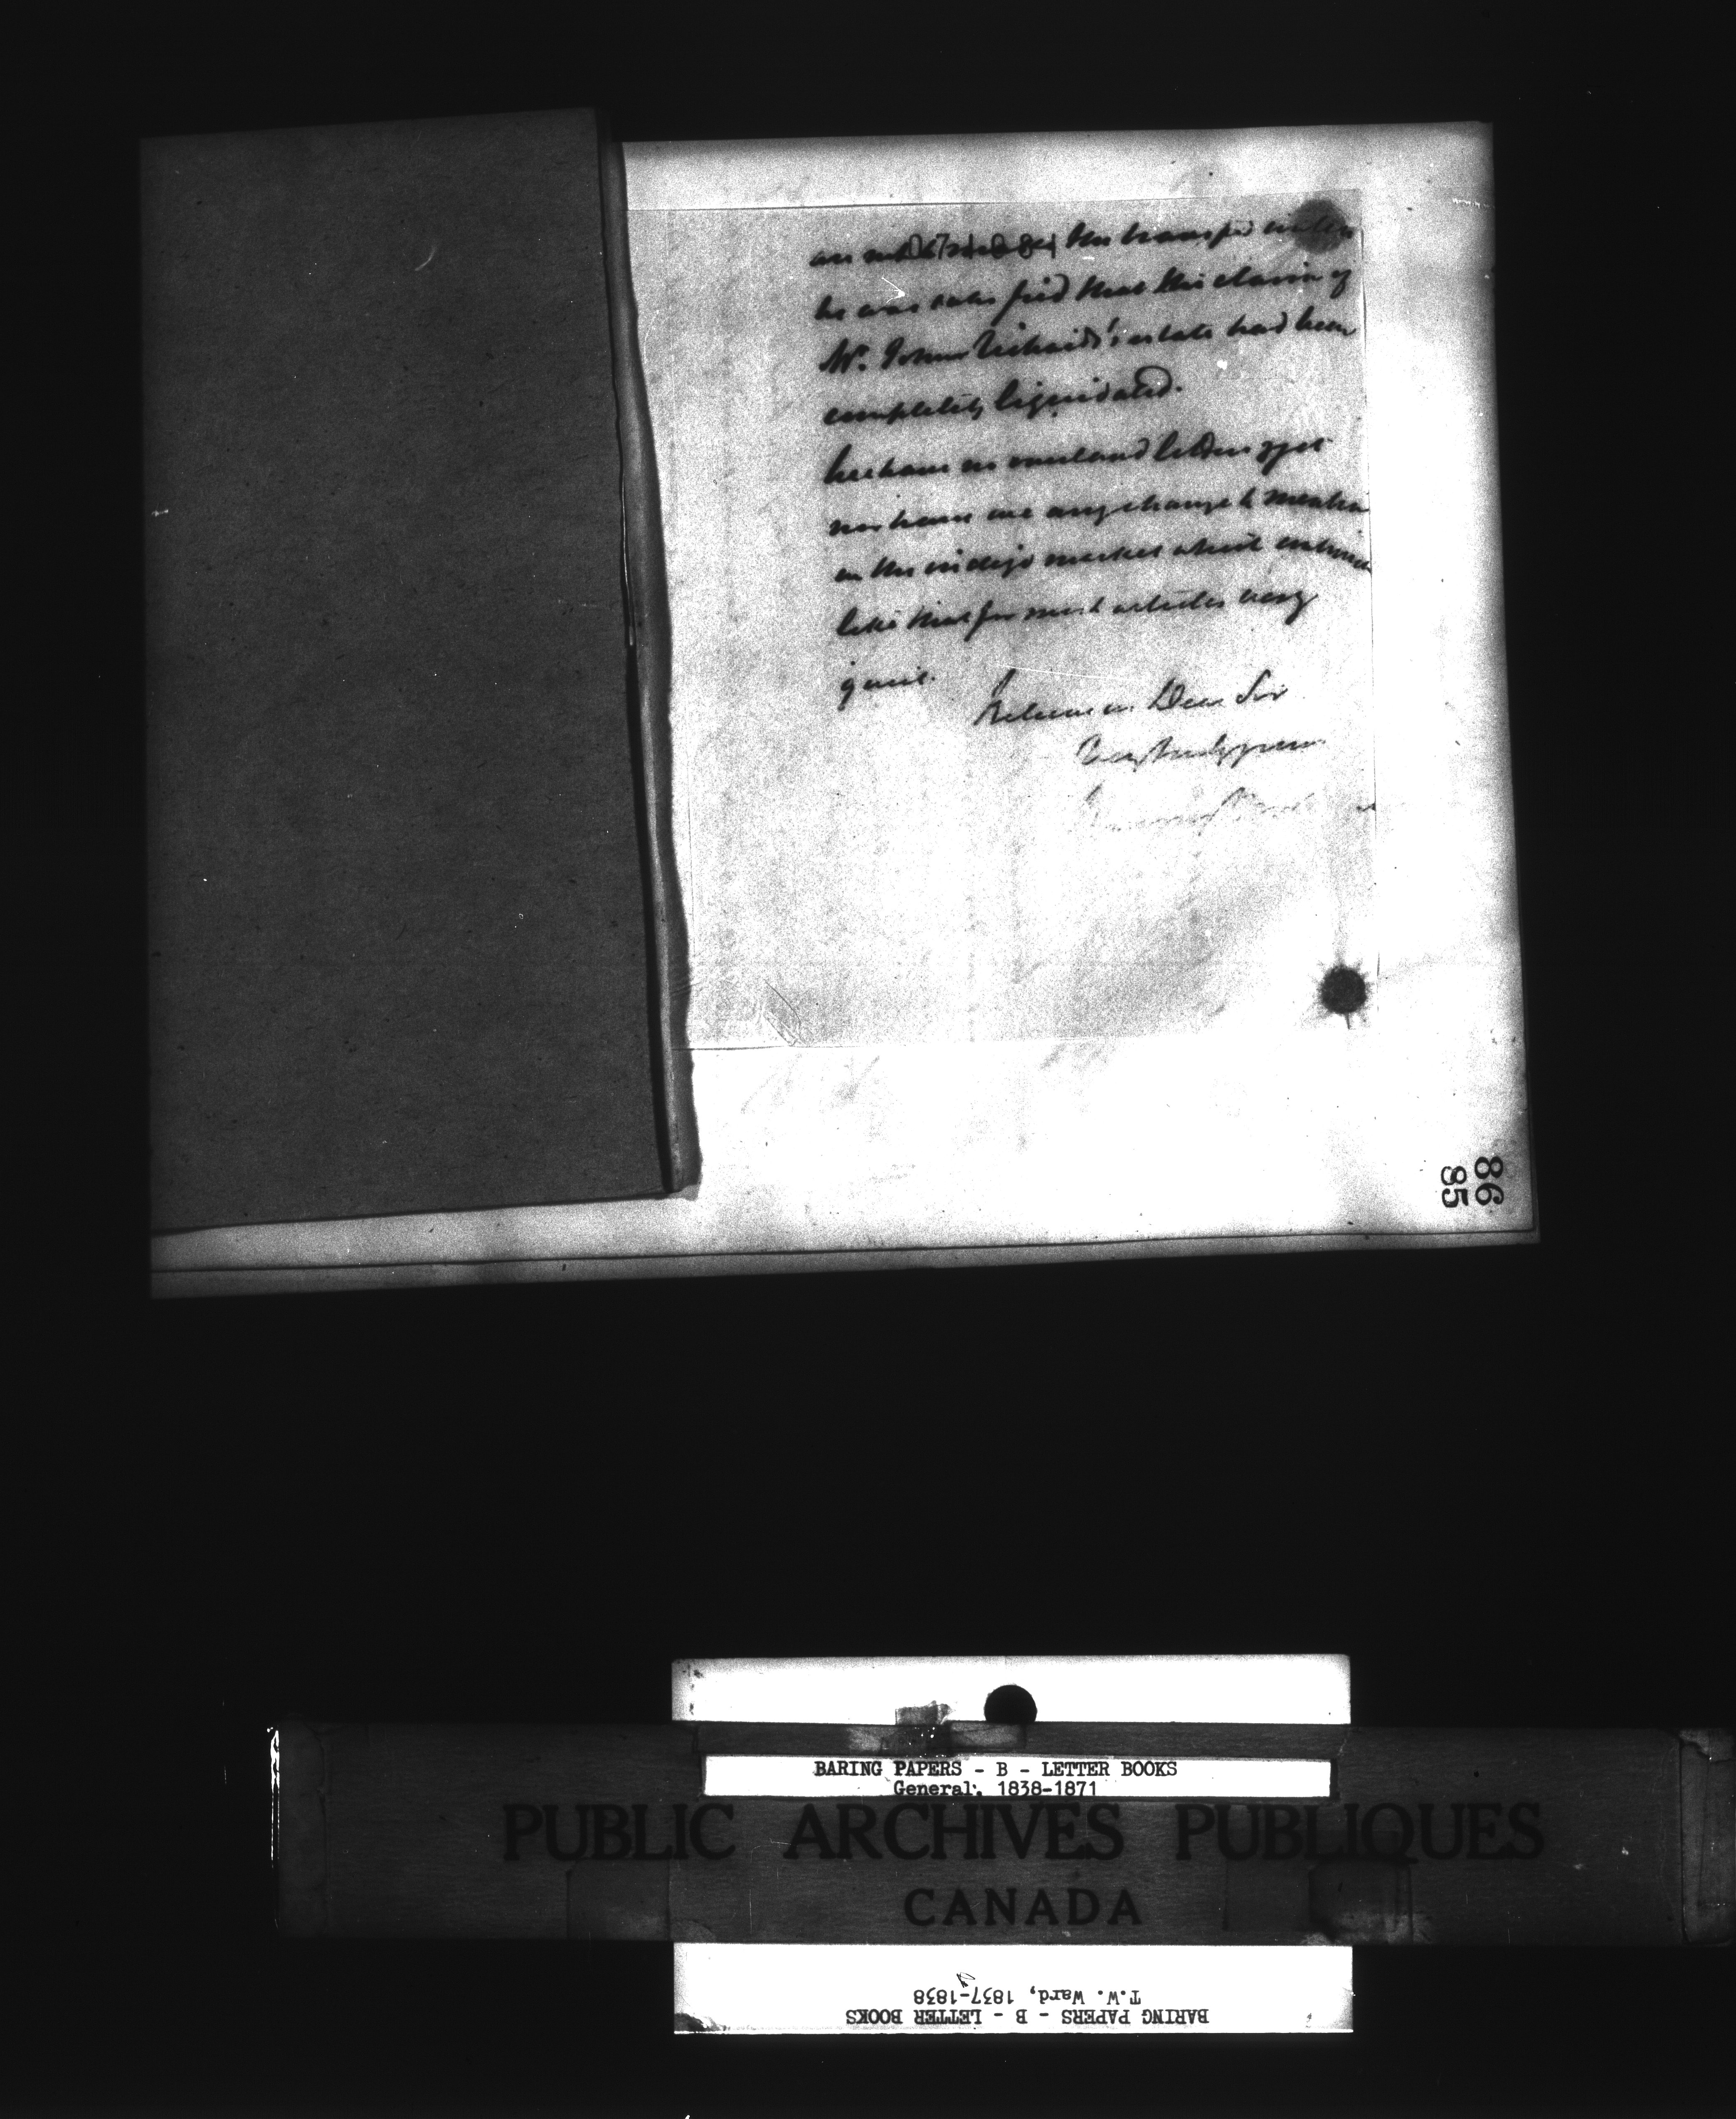 he was satisfied that this claim of
Mr. John Richards' estate had been
completely liquidated.
We have no overland letters yet
nor have we any change to mention
in the indigo market which continues
like that for most articles very
quiet.
Believe us Dear Sir
Very truly yours
86
85
BARING PAPERS - B - LETTER BOOKS
General, 1838-1871
PUBLIC ARCHIVES PUBLIQUES
CANADA
BARING PAPERS - B - LETTER BOOKS
T.W. Ward, 1837-1838